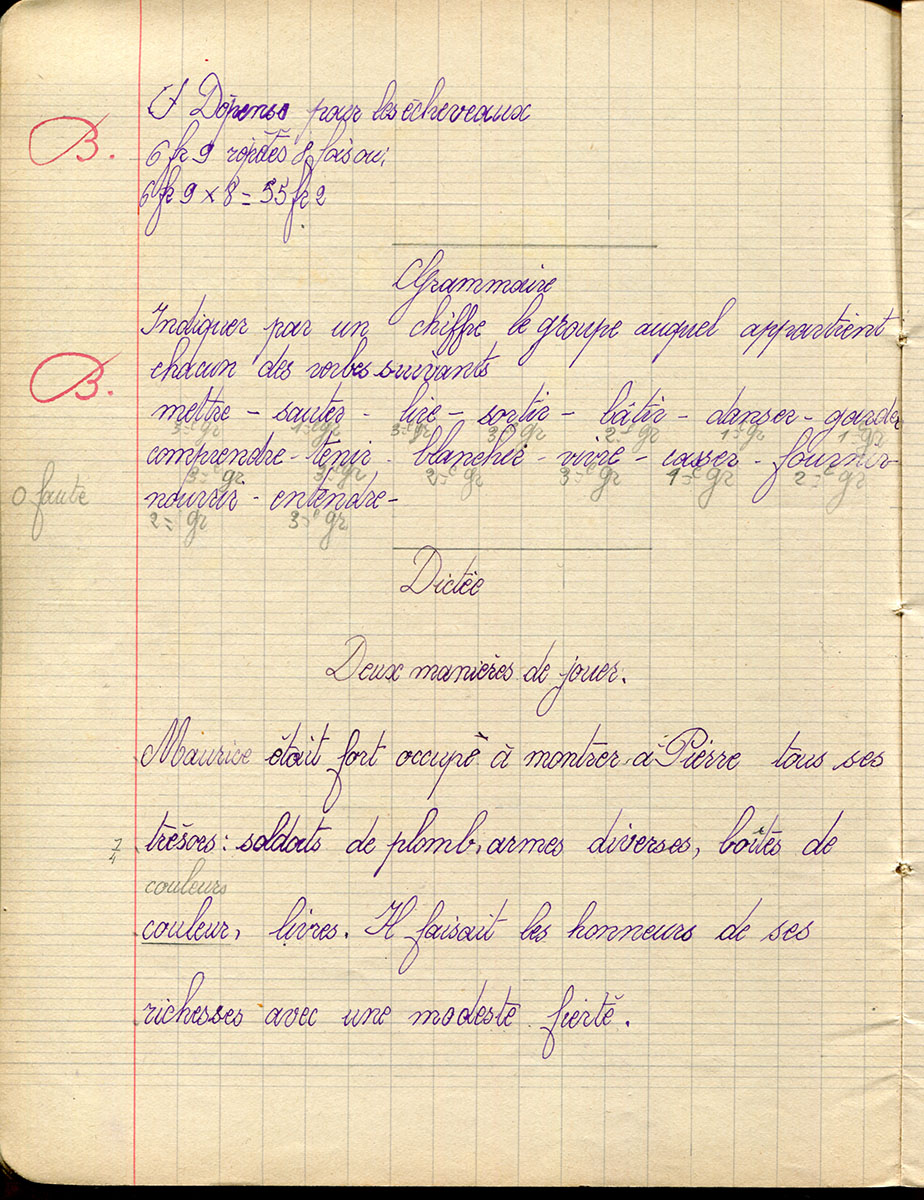 Dépense pour les écheveaux
B. 6 fr 9 répétés 8 fois ou;
6 fr 9 × 8 = 55 fr 2
Grammaire
Indiquer par un chiffre le groupe auquel appartient
B. chacun des verbes suivants
mettre - sauter - lire - sortir - bâtir - danser - garder
3e gr 1e gr 3e gr 3e gr 2e gr 1e gr 1e gr
comprendre - tenir - blanchir - vivre - casser - fournir
3e gr 3e gr 2e gr 3e gr 1e gr 2e gr
0 faute nourrir - entendre -
2e gr 3e gr
Dictée
Deux manières de jouer.
Maurice était fort occupé à montrer à Pierre tous ses
trésors: soldats de plomb, armes diverses, boîtes de
couleurs
couleur, livres. Il faisait les honneurs de ses
richesses avec une modeste fierté.